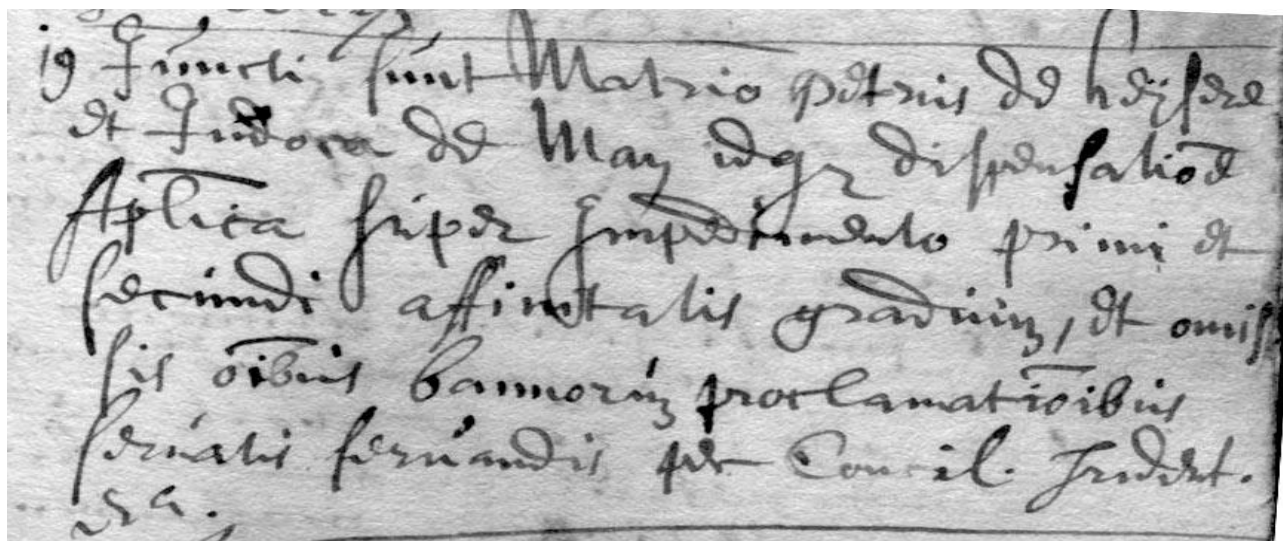 19 Juncti sunt Matrio petrus de heijsere
et Judoca de Maij idq3 dispensatiōe
Ap̄lica super Impedimento primi et
secundi affinitatis graduum, et omis
sis oībus bannorum proclamatiōibus
servatis servandis per Concil. Trident.